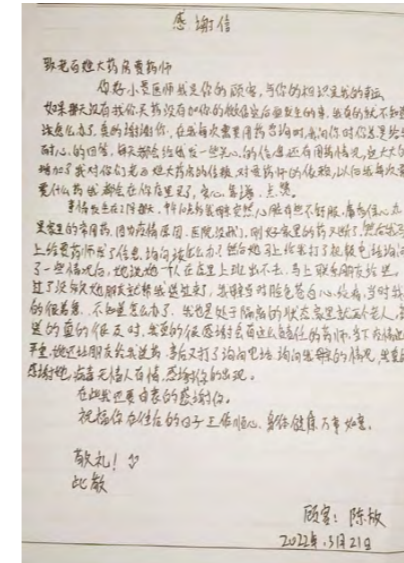 感谢信
致老百姓大药房夏药师
你好小夏医师我是你的顾客,与你的相识是我的幸运,
如果那天没有我你买药没有加你的微信突后面发生的事,我真的就不知道
该怎么办了,真的谢谢你,在我每次需要用药咨询时,我问你时你总是给
耐心的回答,每天都会给我发一些关心的信息还有用药情况,这大大的
增加了我对你们老百姓大药房的信赖,对夏药师的信赖,以后我每次需
要什么药我都会在你店里买了,安心、靠谱、点赞。
事情发生在2月
家里的常用药,因为疫情原因,医院没我们,刚好家里的药又断了,然后我马
上给夏药师发了信息,询问该怎么办?然后她马上给我打了视频电话询问
了一些情况后,她说她一个人在店里上班出不去,马上联系朋友给送,
过了没多久她朋友就帮我送过来了,当时我
的很着急,不知道怎么办了,我也是处于隔离的状态家里就两个老人,
送的真的很及时,我真的很感谢会有这么负责任的药师,当下疫情这
严重,她还让朋友给我送药,事后又打了询问电话询问的情况,我真的
感谢她,病毒无情人有情,感谢你的出现。
在此我还要由衷的感谢你。
祝福你在往后的日子工作顺心,身体健康万事如意。
敬礼!
此致
顾客:陈
2022年.3月21日